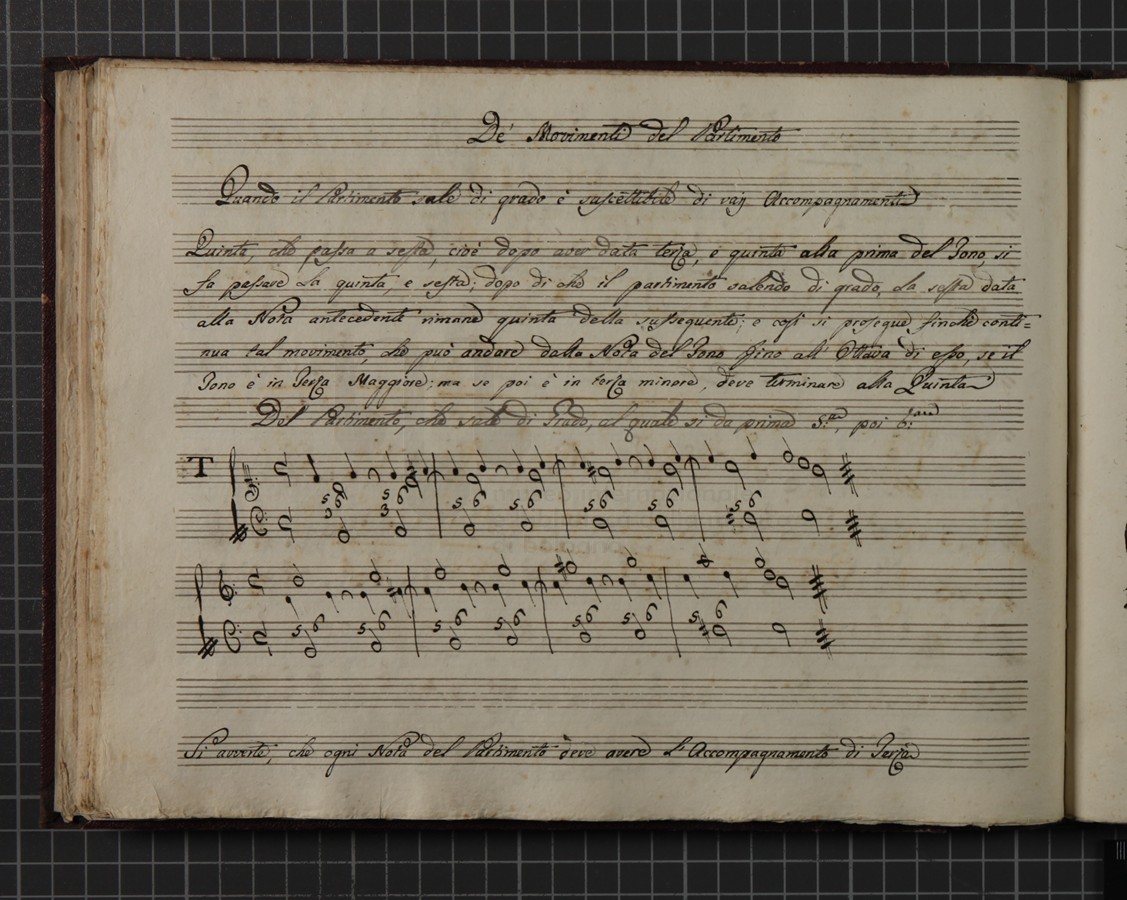 De' Movimenti del Partimento
Quando il Partimento sale di grado è suscettibile di varj Accompagnamenti
Quinta, che passa a sesta, cioè dopo aver data terza, e quinta alla prima del Tono, si
fa passare la quinta, e sesta; dopo di che il partimento salendo di grado, la sesta data
alla Nota antecedente rimane quinta della susseguente; e così si prosegue finchè conti=
nua tal movimento, che può andare dalla Nota del Tono fino all' Ottava di esso, se il
Tono è in Terza Maggiore; ma se poi è in terza minore, deve terminare alla Quinta
Del Partimento, che sale di Grado, al quale si da prima 5.ª, poi 6.ª
T
5 6 5 6 5 6 5 6 5 6 5 6 5 6
3 3
5 6 5 6 5 6 5 6 5 6 5 6 5 6
Si averte, che ogni Nota del Partimento deve avere l'Accompagnamento di Terza